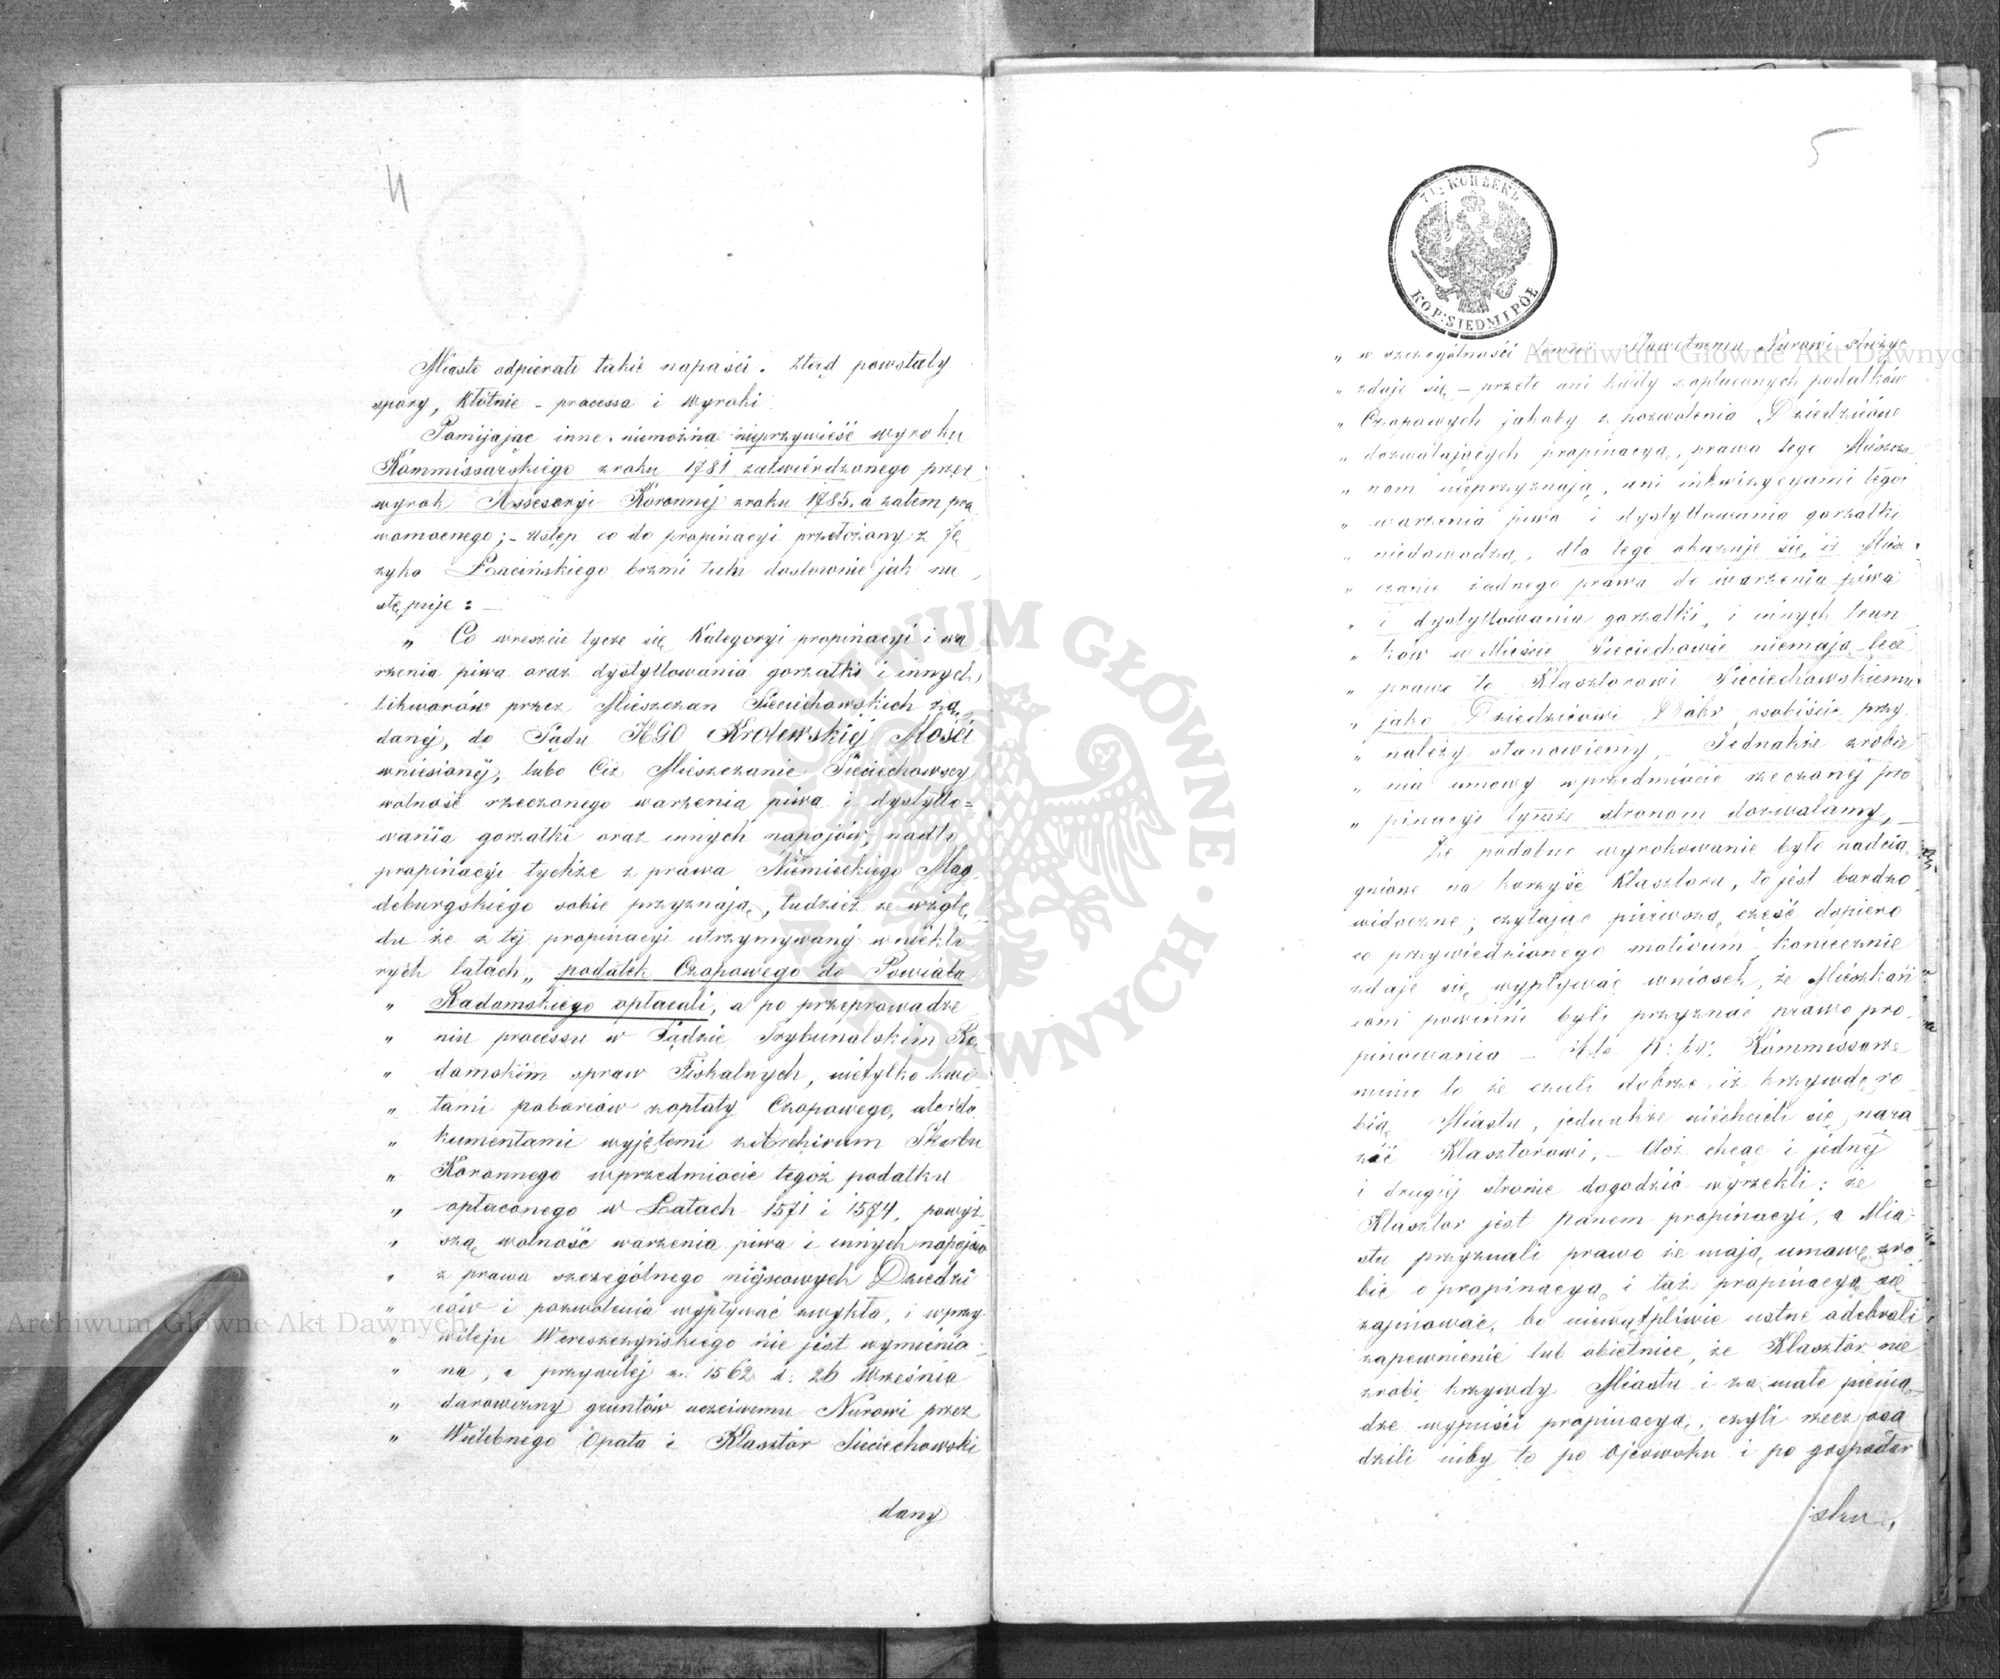 4
Miasto odpierało takie napaści. Ztąd powstały
spory, kłótnie – processa i wyroki
Pomijając inne. niemożna nieprzywieść wyroku
Kommissarskiego zroku 1781 zatwierdzonego przez
wyrok Assesoryi Koronnej zroku 1785. a zatem pra
womocnego; – ustęp co do propinacyi przełożony z Ję
zyka Łacińskiego brzmi tutaj dosłownie jak na
stępuje: –
„ Co wreszcie tycze się Kategoryi propinacyi i wa
rzenia piwa oraz dystyllowania gorzałki i innych
likworów przez Mieszczan Sieciechowskich żą
danej, do Sądu JEGO Królewskiej Mości
wniesionej, lubo Ciż Mieszczanie Sieciechowscy
wolność rzeczonego warzenia piwa i dystyllo=
wania gorzałki oraz innych napojów, nadto
propinacyi tychże z prawa Niemieckiego Mag
deburgskiego sobie przyznają, tudzież ze wzglę
du że z tej propinacyi utrzymywanej wniektó
rych latach „ podatek Czopowego do Powiatu
„ Radomskiego opłacali, a po przeprowadze
„ niu processu w Sądzie Trybunalskim Ra
„ domskim spraw Fiskalnych, nietylko kwi
„ tami poborców zopłaty Czopowego, ale i do
„ kumentami wyjętemi z Archivum Skarbu
„ Koronnego wprzedmiocie tegoż podatku
„ opłaconego w Latach 1571 i 1574, powyż
„ szą wolność warzenia piwa i innych napojów
„ z prawa szczególnego miejscowych Dziedzi
„ ców i pozwolenia wypływać zwykła, i wprzy
„ wileju Wereszczyńskiego nie jest wymienio
„ na, a przywilej z r. 1562 d. 26 Września
„ darowizny gruntów uczciwemu Nurowi przez
„ Wielebnego Opata i Klasztór Sieciechowski
dany
5
7½ КОПѢЕКЪ
KOP: SIEDM I PÓŁ
„ w szczególności temuż Sławetnemu Nurowi służyć
„ zdaje się – przeto ani kwity zopłaconych podatków
„ Czopowych jakoby z pozwolenia Dziedziców
„ dozwalających propinacyą, prawa tego Mieszcza
„ nom nieprzyznają, ani inkwizycyami tegoż
„ warzenia piwa i dystyllowania gorzałki
„ niedowodzą, dla tego okazuje się, iż Miesz
„ czanie żadnego prawa do warzenia piwa
„ i dystyllowania gorzałki, i innych trun
„ ków w Mieście Sieciechowie niemają lecz
„ prawo to Klasztorowi Sieciechowskiemu
„ jako Dziedzicowi Dóbr osobiście przy
„ należy stanowiemy, – Jednakże zrobie
„ nia umowy wprzedmiocie rzeczonej pro
„ pinacyi tymże stronom dozwalamy, –
Że podobne wyrokowanie było nadcią
gnione na korzyść Klasztoru, to jest bardzo
widoczne; czytając pierwszą część dopiero
co przywiedzionego motivum, koniecznie
zdaje się wypływać wniosek, że Mieszkań
com powinni byli przyznać prawo pro
pinowania – Ale Kommissarze
mimo to że czuli dobrze iż krzywdę ro
bią Miastu, jednakże niechcieli się nara
zić Klasztorowi, – Otóż chcąc i jednej
i drugiej stronie dogodzić wyrzekli: że
Klasztor jest panem propinacyi, a Mia
stu przyznali prawo że mają umowę zro
bić o propinacyą i taż propinacyą się
zajmować, bo niewątpliwie ustne odebrali
zapewnienie lub obietnice, że Klasztór nie
zrobi krzywdy Miastu i za małe pienią
dze wypuści propinacyą, czyli rzecz osą
dzili niby to po Ojcowsku i po gospodar
sku,
Archiwum Główne Akt Dawnych
Archiwum Główne Akt Dawnych
ARCHIWUM GŁÓWNE · AKT DAWNYCH ·